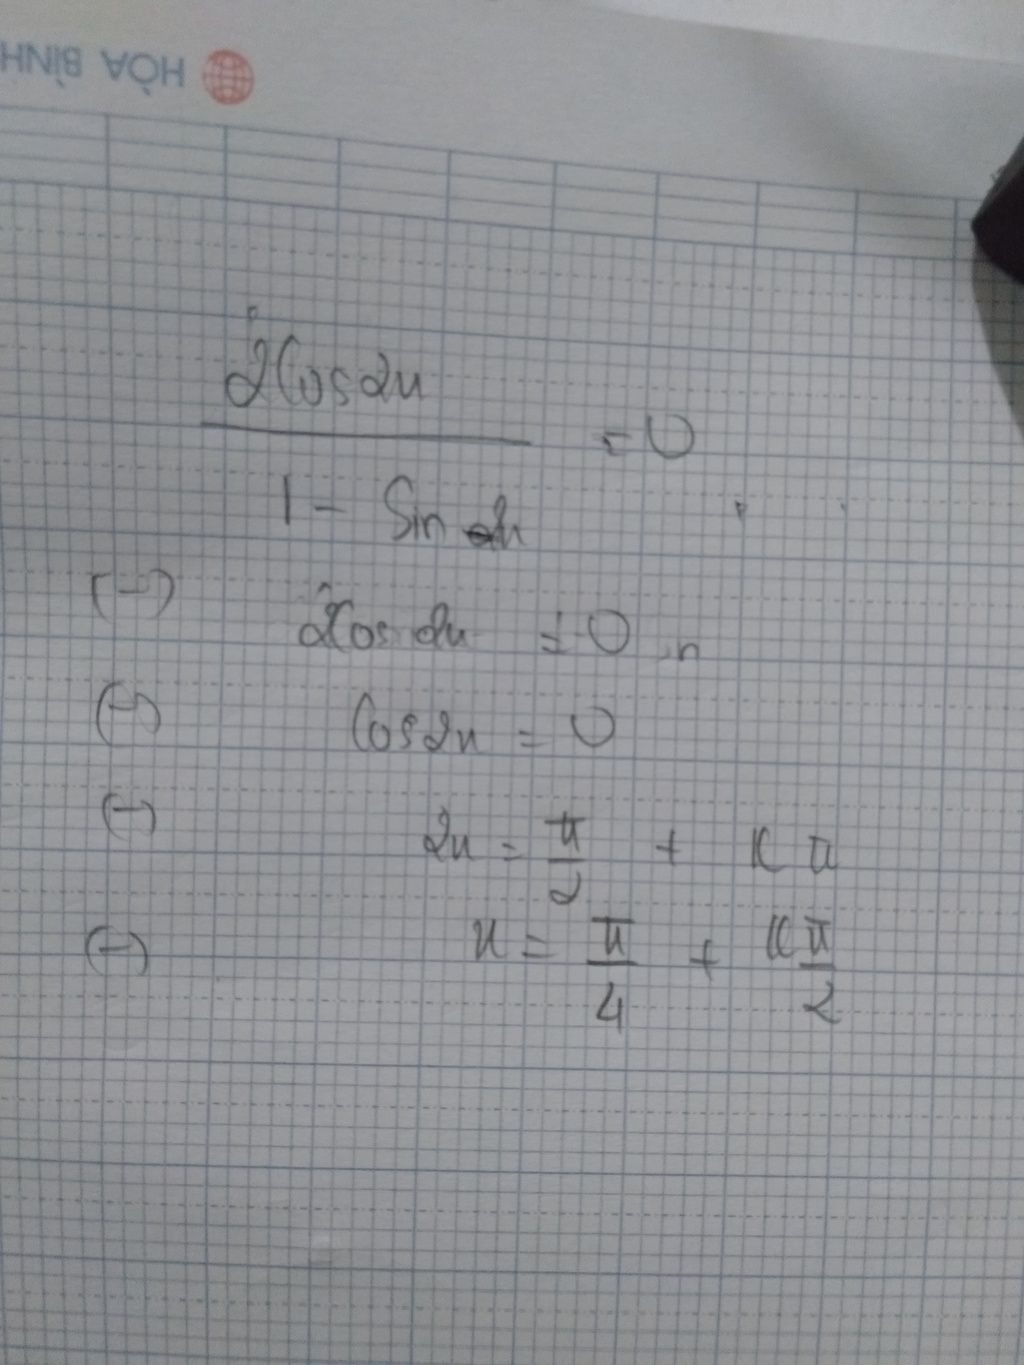 HÒA BÌNH
2Cos2x
= 0
1 - Sin 2x
(-) 2Cos 2x = 0
(-) Cos2x = 0
(-) 2x = π/2 + K π
(-) x = π/4 + K π/2